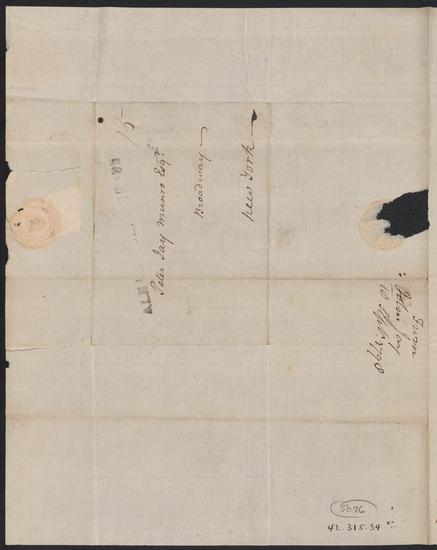 15
Peter Jay Munro Esqr.
Broadway
New York
From
John Jay
10 Sept. 1790
5076
42.315.34